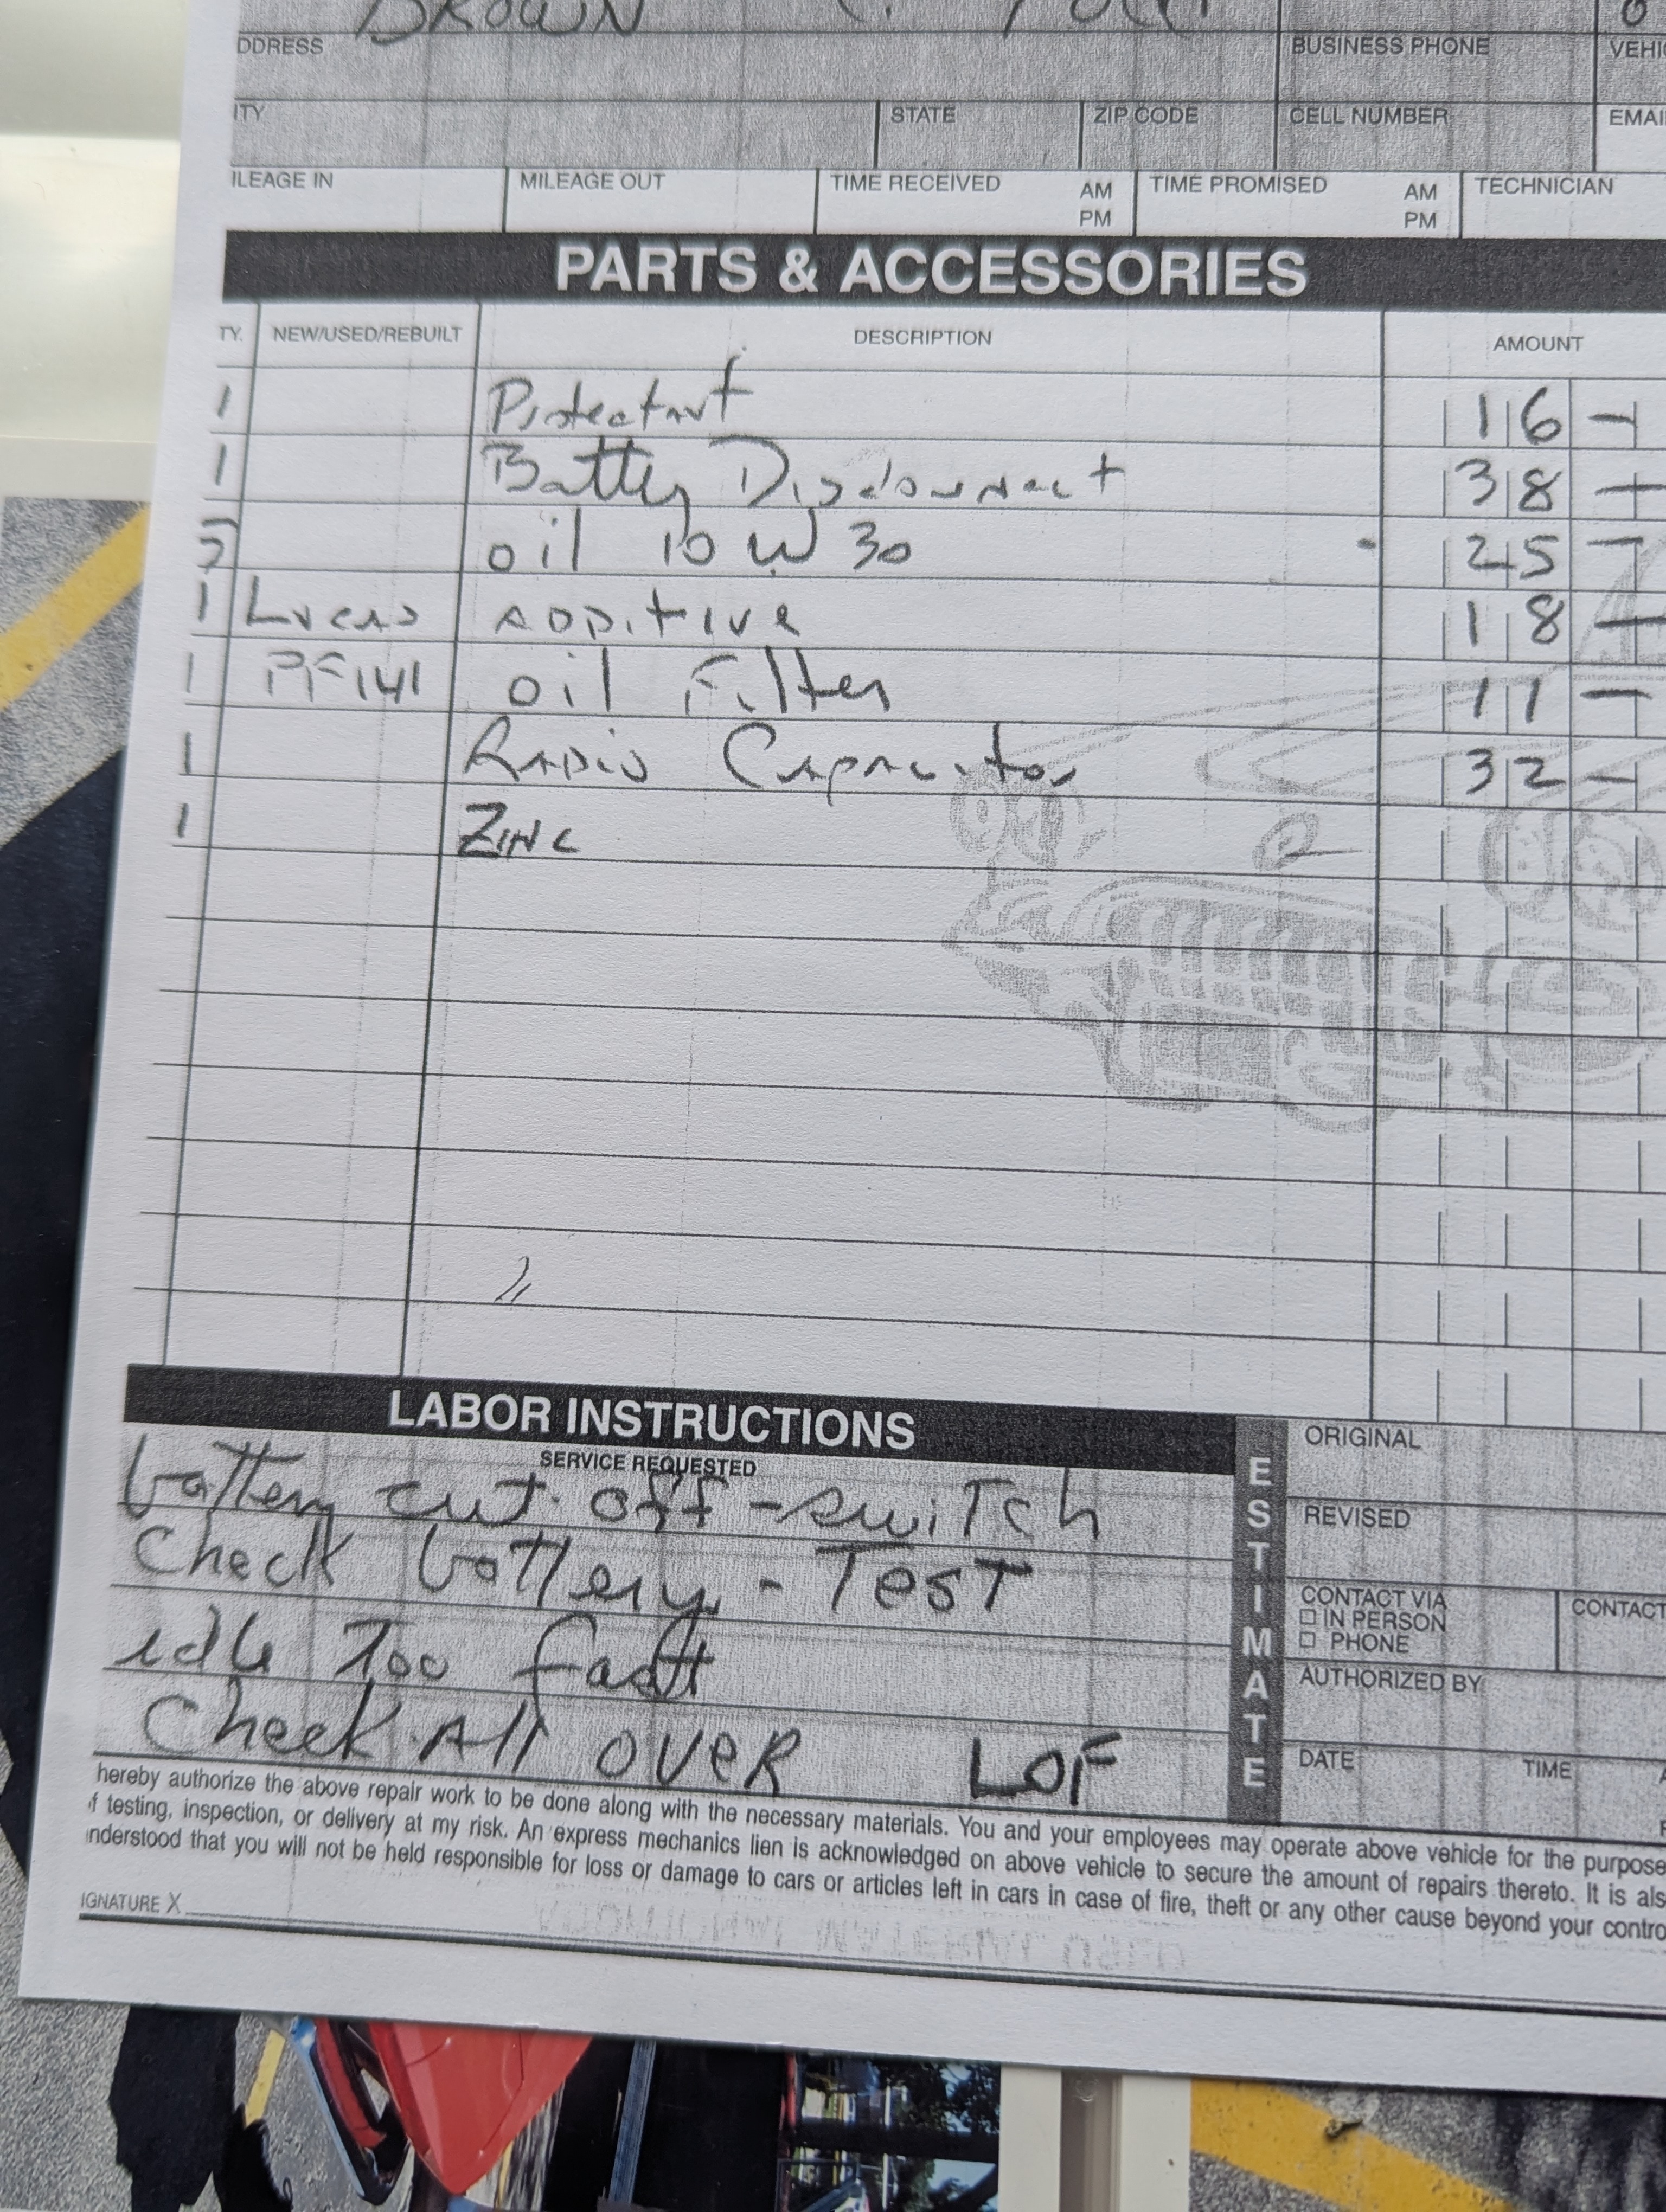 BROWN
DDRESS BUSINESS PHONE VEHI
ITY STATE ZIP CODE CELL NUMBER EMAI
ILEAGE IN MILEAGE OUT TIME RECEIVED AM PM TIME PROMISED AM PM TECHNICIAN
PARTS & ACCESSORIES
TY. NEW/USED/REBUILT DESCRIPTION AMOUNT
1 Protectant 16 —
1 Battery Disconnect 38 —
5 oil 10 W 30 25 —
1 Lucas ADDitive 18 —
1 PF141 oil Filter 11 —
1 RADio CAPACitor 32 —
1 ZINC
LABOR INSTRUCTIONS
SERVICE REQUESTED
battery cut off - switch
Check battery - Test
idle Too fast
Check All OVER LOF
ESTIMATE
ORIGINAL
REVISED
CONTACT VIA
IN PERSON
PHONE
CONTACT
AUTHORIZED BY
DATE TIME
hereby authorize the above repair work to be done along with the necessary materials. You and your employees may operate above vehicle for the purpose
of testing, inspection, or delivery at my risk. An express mechanics lien is acknowledged on above vehicle to secure the amount of repairs thereto. It is als
nderstood that you will not be held responsible for loss or damage to cars or articles left in cars in case of fire, theft or any other cause beyond your contro
IGNATURE X